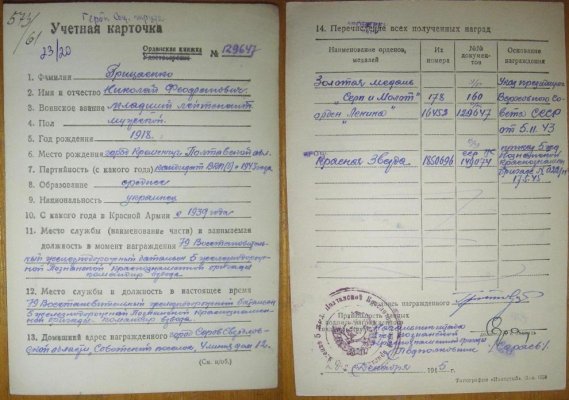 573/61
Герой Соц. труда
Учетная карточка
23/20
Орденская книжка
№ 129647
1. Фамилия Грицаенко
2. Имя и отчество Николай Феодосиевич
3. Воинское звание младший лейтенант
4. Пол мужской
5. Год рождения 1918
6. Место рождения город Кременчуг Полтавской обл.
7. Партийность (с какого года) кандидат ВКП(б) с 1943 года
8. Образование среднее
9. Национальность украинец
10. С какого года в Красной Армии с 1939 года
11. Место службы (наименование части) и занимаемая
должность в момент награждения 79 Восстановитель
ный железнодорожный батальон 5 железнодорож
ной Познанской Краснознаменной бригады
командир взвода
12. Место службы и должность в настоящее время
79 Восстановительный железнодорожный батальон
5 железнодорожной Познанской Краснознамен
ной бригады командир взвода
13. Домашний адрес награжденного город Серов Свердлов
ской области Советский поселок, улица дом 12.
(См. н/об.)
14. Перечисление всех полученных наград
Наименование орденов, медалей
Их номера
№№ докумен-тов
Основания награждения
Золотая медаль Указ президиума
"Серп и Молот" 178 160 Верховного Со
орден "Ленина" 16452 129647 вета СССР
от 5.11.43
Красная Звезда 1850696 приказ 5 жд
Познанской
Краснознамен
бригады
Подпись награжденного
Познанской
Краснознаменной
Подполковник
Сараев
28 сентября 1945 г.